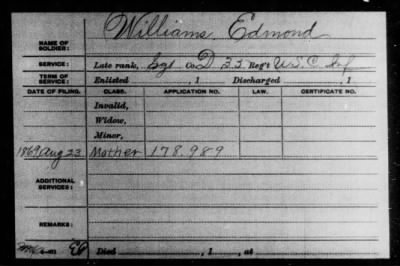 NAME OF SOLDIER: Williams, Edmond
SERVICE: Late rank, Sgt Co. D, 33 Reg't U.S.C. Inf
TERM OF SERVICE: Enlisted , 1 Discharged , 1
DATE OF FILING. CLASS. APPLICATION NO. LAW. CERTIFICATE NO.
Invalid,
Widow,
Minor,
1869 Aug 23 Mother 178.989
ADDITIONAL SERVICES:
REMARKS:
Died , 1 , at